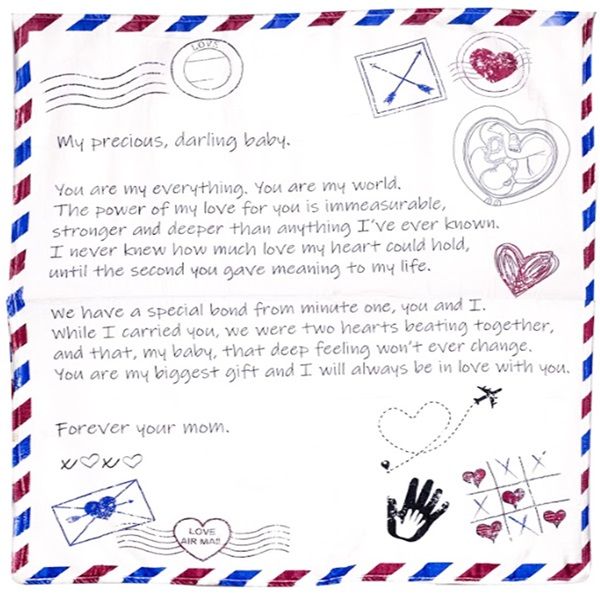 LOVE
My precious, darling baby.
You are my everything. You are my world.
The power of my love for you is immeasurable,
stronger and deeper than anything I've ever known.
I never knew how much love my heart could hold,
until the second you gave meaning to my life.
We have a special bond from minute one, you and I.
While I carried you, we were two hearts beating together,
and that, my baby, that deep feeling won't ever change.
You are my biggest gift and I will always be in love with you.
Forever your mom.
x♡x♡
LOVE
AIR MAIL
X X
X
X